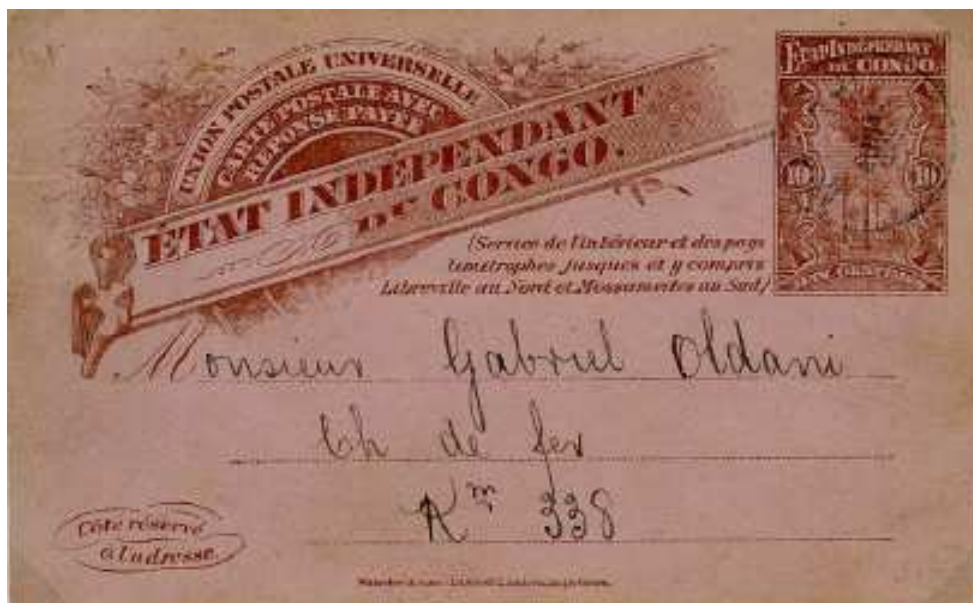 UNION POSTALE UNIVERSELLE
CARTE POSTALE AVEC
RÉPONSE PAYÉE
ÉTAT INDÉPENDANT
DU CONGO.
ÉTAT INDÉPENDANT
DU CONGO.
10 10
(Service de l'intérieur et des pays
limitrophes jusques et y compris
Libreville au Nord et Mossamedes au Sud)
Monsieur Gabriel Oldani
Ch de fer
Km 338
Côté réservé
à l'adresse.